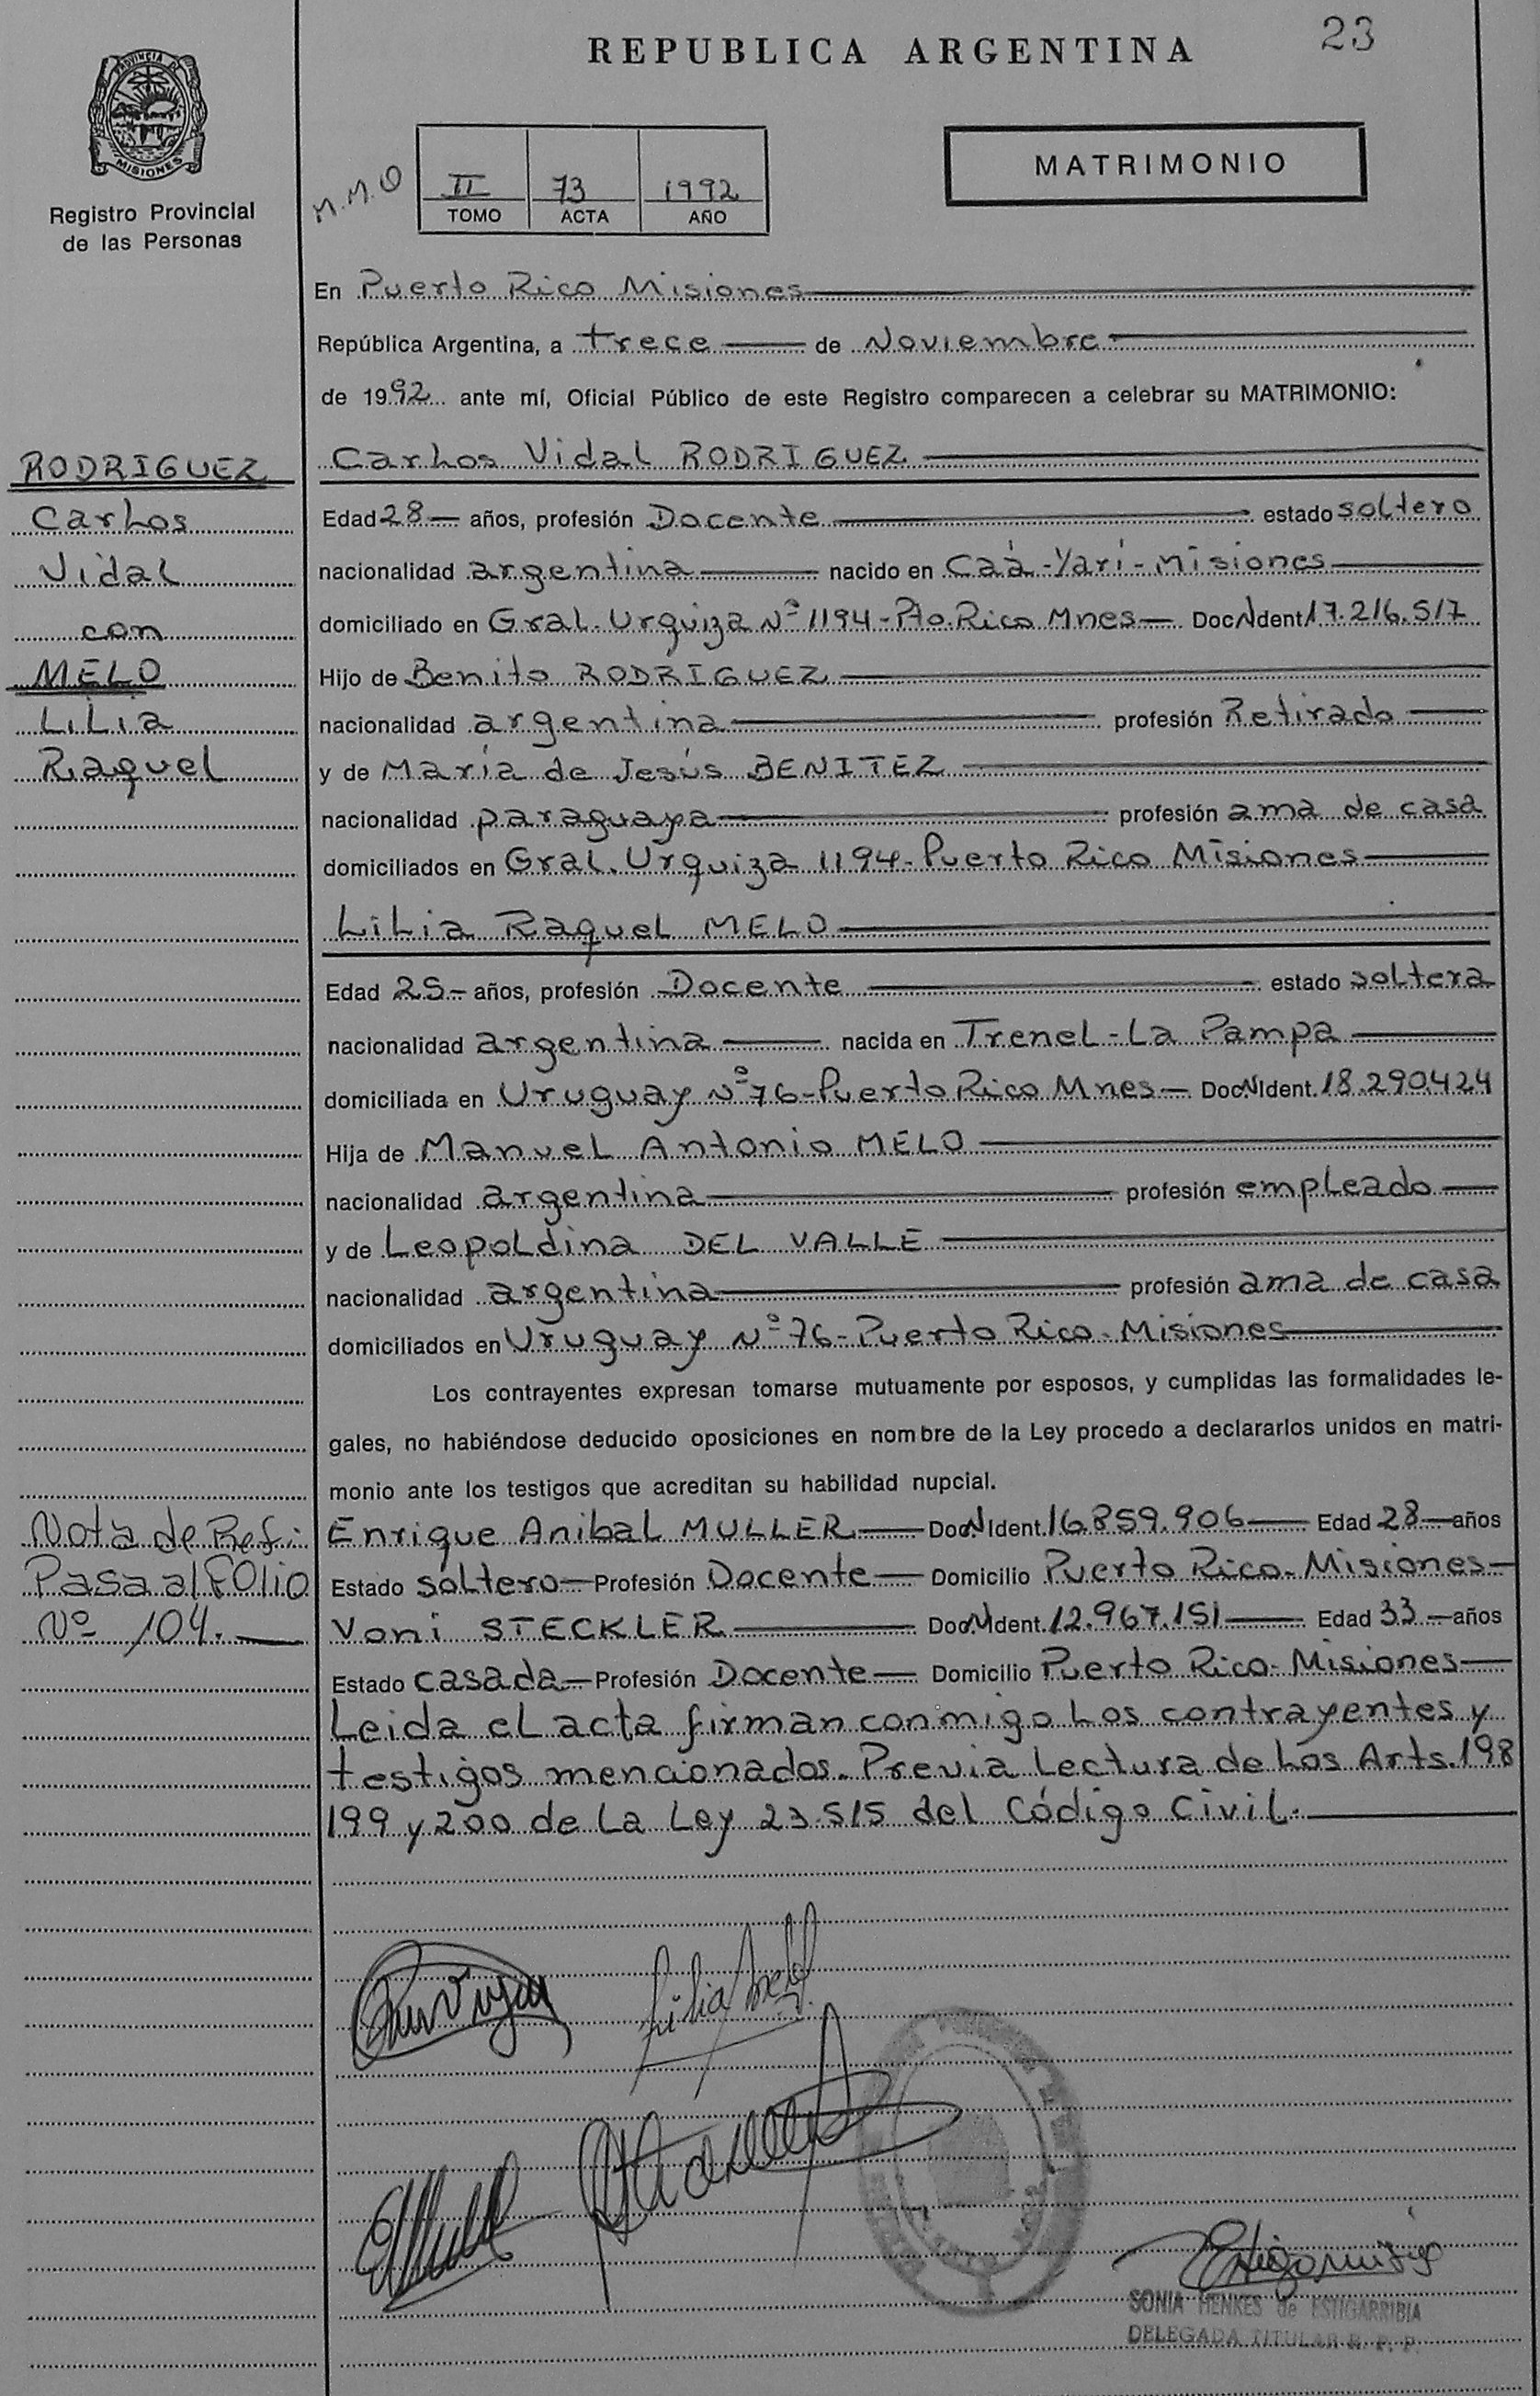 23
REPUBLICA ARGENTINA
PROVINCIA DE
MISIONES
Registro Provincial
de las Personas
M.M.O
II 73 1992
TOMO ACTA AÑO
MATRIMONIO
En Puerto Rico Misiones
República Argentina, a trece de Noviembre
de 1992 ante mí, Oficial Público de este Registro comparecen a celebrar su MATRIMONIO:
Carlos Vidal RODRIGUEZ
Edad 28 años, profesión Docente estado soltero
nacionalidad argentina nacido en Caá-Yarí-Misiones
domiciliado en Gral. Urquiza Nº 1194-Pto.Rico Mnes Doc.N.Ident. 17.216.517
Hijo de Benito RODRIGUEZ
nacionalidad argentina profesión Retirado
y de María de Jesús BENITEZ
nacionalidad paraguaya profesión ama de casa
domiciliados en Gral. Urquiza 1194-Puerto Rico Misiones
Lilia Raquel MELO
Edad 25 años, profesión Docente estado soltera
nacionalidad argentina nacida en Trenel-La Pampa
domiciliada en Uruguay Nº 76-Puerto Rico Mnes Doc.N.Ident. 18.290.424
Hija de Manuel Antonio MELO
nacionalidad argentina profesión empleado
y de Leopoldina DEL VALLE
nacionalidad argentina profesión ama de casa
domiciliados en Uruguay Nº 76-Puerto Rico-Misiones
Los contrayentes expresan tomarse mutuamente por esposos, y cumplidas las formalidades le-
gales, no habiéndose deducido oposiciones en nombre de la Ley procedo a declararlos unidos en matri-
monio ante los testigos que acreditan su habilidad nupcial.
Enrique Anibal MULLER Doc.N.Ident. 16.859.906 Edad 28 años
Estado soltero Profesión Docente Domicilio Puerto Rico-Misiones-
Voni STECKLER Doc.N.Ident. 12.967.151 Edad 33 años
Estado casada Profesión Docente Domicilio Puerto Rico-Misiones
Leida el acta firman conmigo los contrayentes y
testigos mencionados. Previa lectura de los Arts. 198
199 y 200 de la Ley 23.515 del Código Civil.
RODRIGUEZ
Carlos
Vidal
con
MELO
Lilia
Raquel
Nota de Ref:
Pasa al Folio
Nº 104.
Lilia Melo
SONIA HENKES de ESTIGARRIBIA
DELEGADA TITULAR R. P. P.